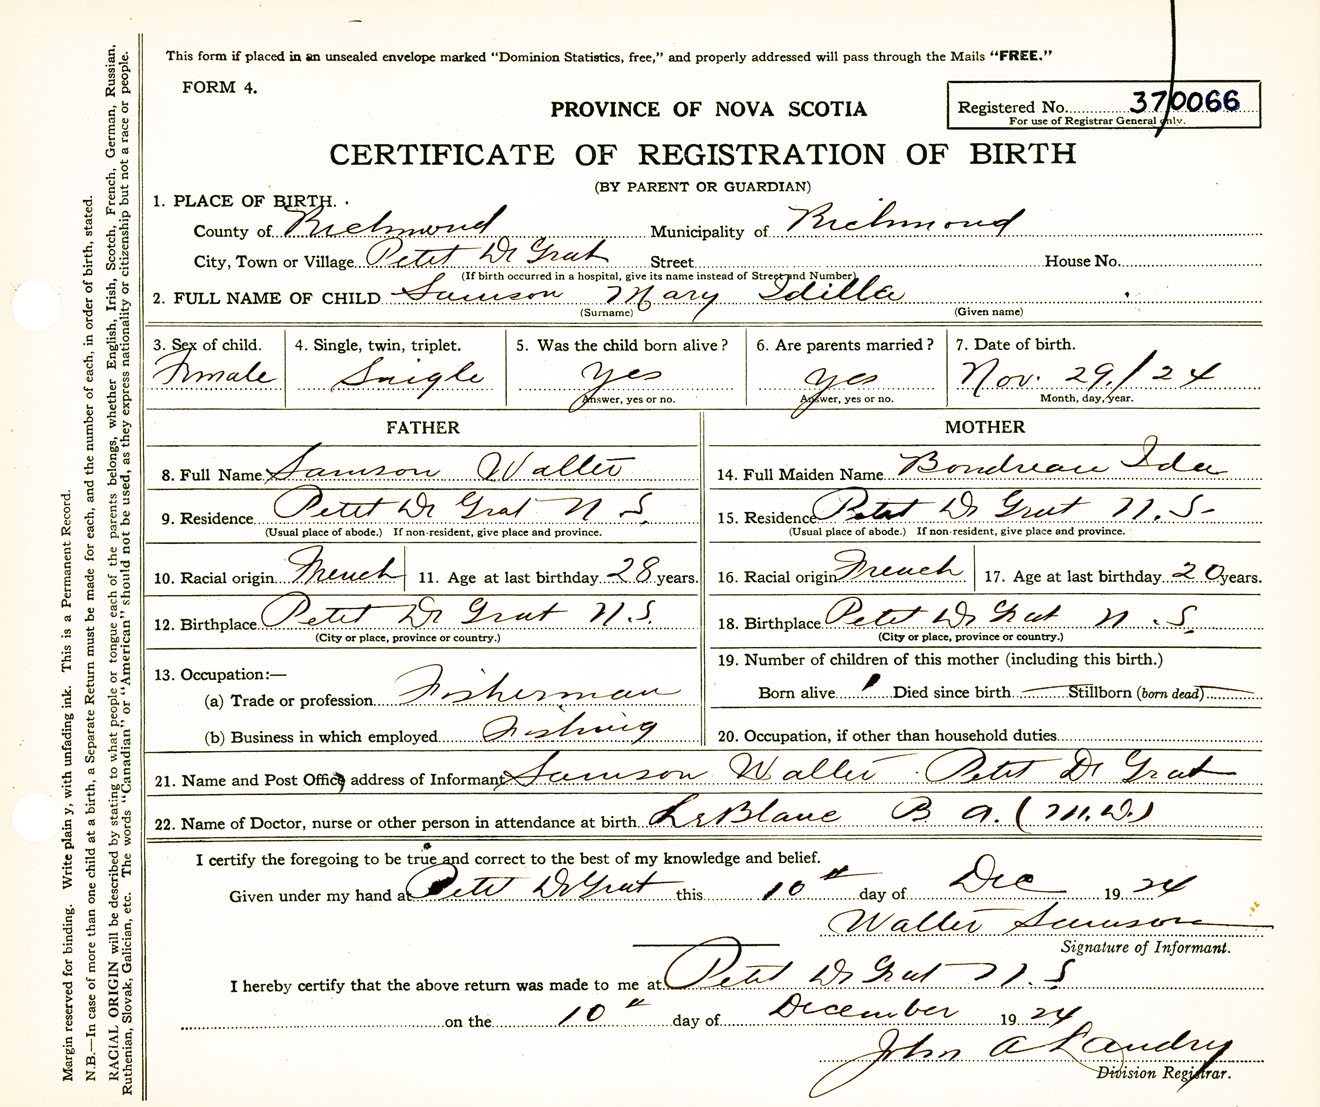 This form if placed in an unsealed envelope marked “Dominion Statistics, free,” and properly addressed will pass through the Mails “FREE.”
FORM 4.
PROVINCE OF NOVA SCOTIA
Registered No. 370066
For use of Registrar General only.
CERTIFICATE OF REGISTRATION OF BIRTH
(BY PARENT OR GUARDIAN)
1. PLACE OF BIRTH.
County of Richmond Municipality of Richmond
City, Town or Village Petit De Grat Street House No.
(If birth occurred in a hospital, give its name instead of Street and Number)
2. FULL NAME OF CHILD Samson Mary Idilla
(Surname) (Given name)
3. Sex of child. 4. Single, twin, triplet. 5. Was the child born alive? 6. Are parents married? 7. Date of birth.
Female Single yes yes Nov. 29/24
Answer, yes or no. Answer, yes or no. Month, day, year.
FATHER MOTHER
8. Full Name Samson Walter 14. Full Maiden Name Boudreau Ida
9. Residence Petit De Grat N S. 15. Residence Petit De Grat N. S-
(Usual place of abode.) If non-resident, give place and province. (Usual place of abode.) If non-resident, give place and province.
10. Racial origin French 11. Age at last birthday 28 years. 16. Racial origin French 17. Age at last birthday 20 years.
12. Birthplace Petit De Grat N.S. 18. Birthplace Petit De Grat N.S.
(City or place, province or country.) (City or place, province or country.)
13. Occupation:— 19. Number of children of this mother (including this birth.)
(a) Trade or profession Fisherman Born alive 1 Died since birth — Stillborn (born dead) —
(b) Business in which employed Fishing 20. Occupation, if other than household duties
21. Name and Post Office address of Informant Samson Walter Petit De Grat
22. Name of Doctor, nurse or other person in attendance at birth LeBlanc B. A. (M.D.)
I certify the foregoing to be true and correct to the best of my knowledge and belief.
Given under my hand at Petit De Grat this 10th day of Dec 1924
Walter Samson
Signature of Informant.
I hereby certify that the above return was made to me at Petit De Grat N.S
on the 10th day of December 1924
John A Landry
Division Registrar.
Margin reserved for binding. Write plain y, with unfading ink. This is a Permanent Record.
N.B.—In case of more than one child at a birth, a Separate Return must be made for each, and the number of each, in order of birth, stated.
RACIAL ORIGIN will be described by stating to what people or tongue each of the parents belongs, whether English, Irish, Scotch, French, German, Russian,
Ruthenian, Slovak, Galician, etc. The words “Canadian” or “American” should not be used, as they express nationality or citizenship but not a race or people.